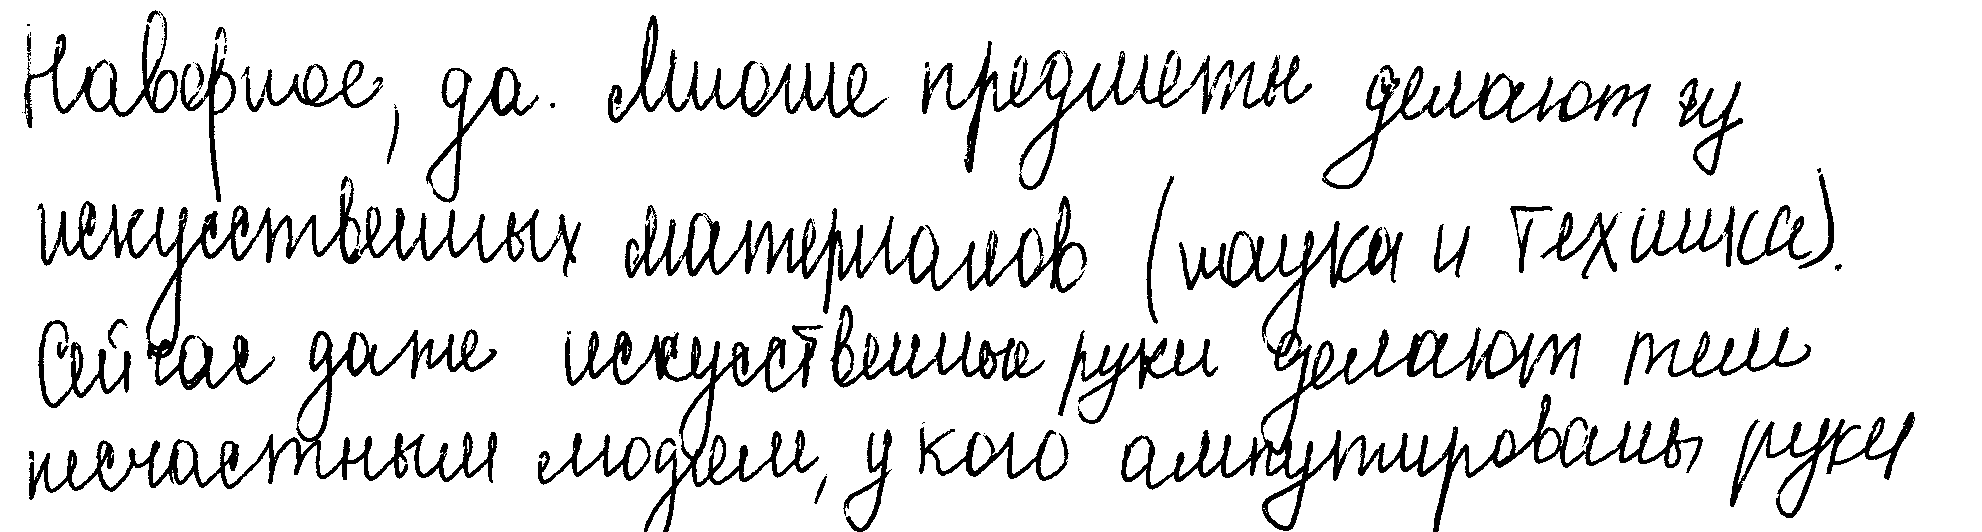 Наверное, да. Многие предметы делают из
искусственных материалов (наука и техника).
Сейчас даже искусственные руки делают тем
несчастным людям, у кого ампутированы руки